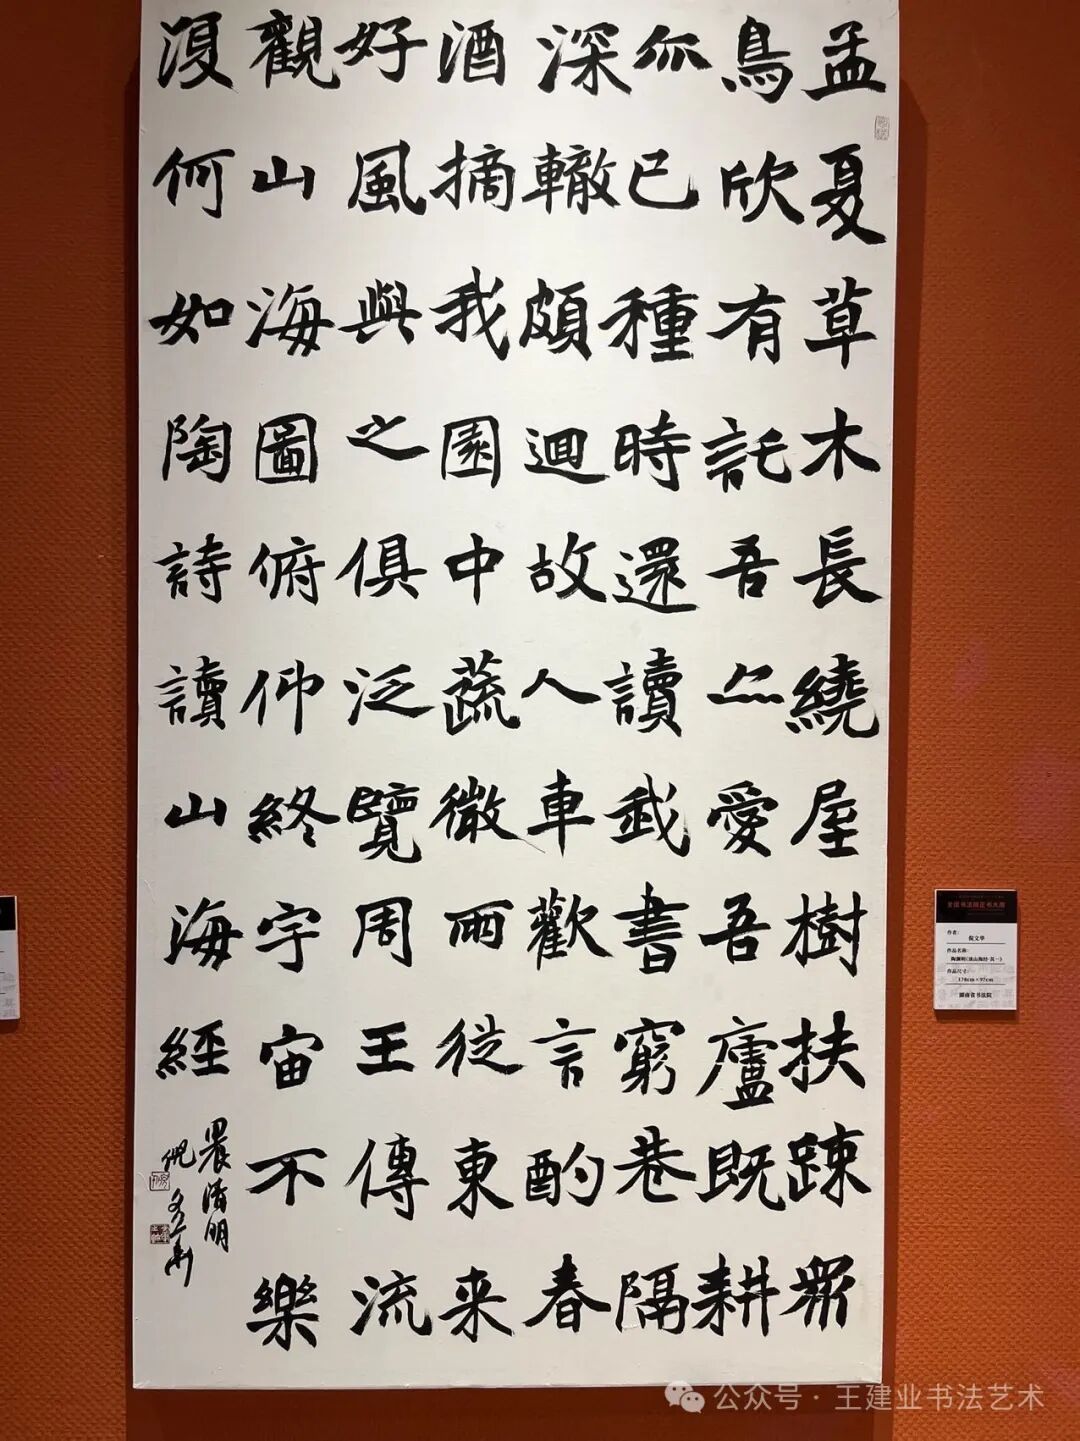 孟夏草木長繞屋樹扶踈眾
鳥欣有託吾亦愛吾廬既耕
亦已種時還讀我書窮巷隔
深轍頗迴故人車歡言酌春
酒摘我園中蔬微雨従東来
好風與之俱泛覽周王傳流
觀山海圖俯仰終宇宙不樂
復何如陶詩讀山海經
清明
倪文華
全国书法院正书大展
作者:
倪文华
作品名称:
陶渊明《读山海经·其一》
作品尺寸:
178cm×97cm
湖南省书法院
公众号·王建业书法艺术